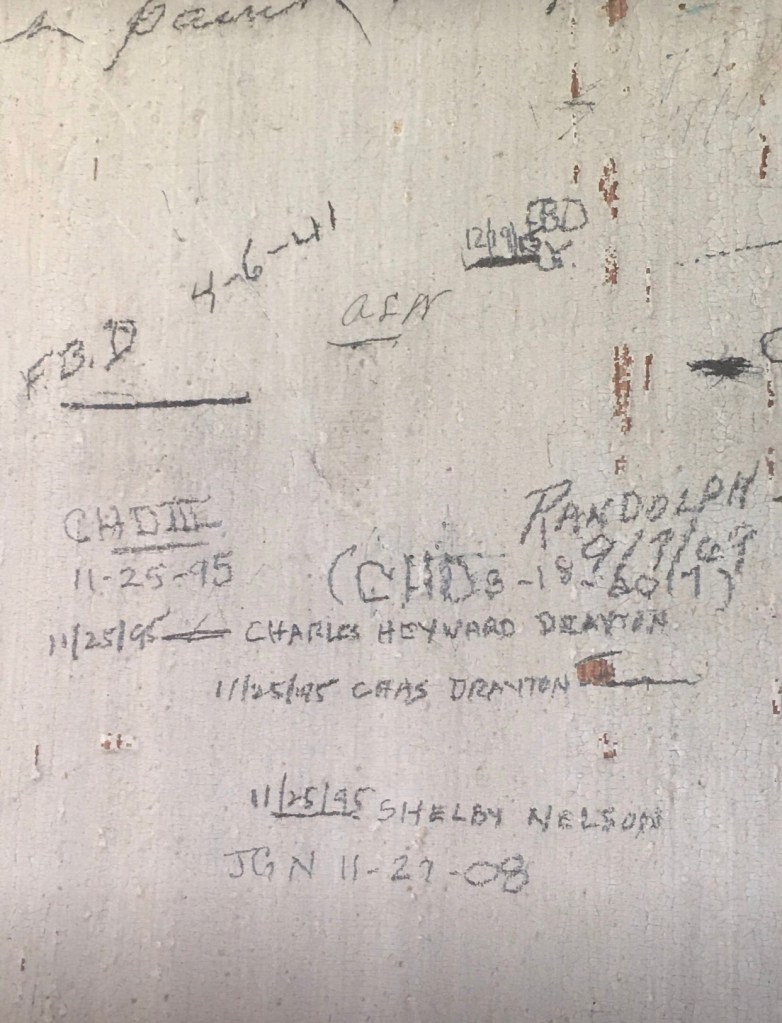 paint
FBD
12/19/
4-6-41
F.B.D
RANDOLPH
9/7/67
CHD III
11-25-95
(CHD 3-18-60(7)
11/25/95 CHARLES HEYWARD DRAYTON
11/25/95 CHAS DRAYTON
11/25/95 SHELBY NELSON
JGN 11-27-08